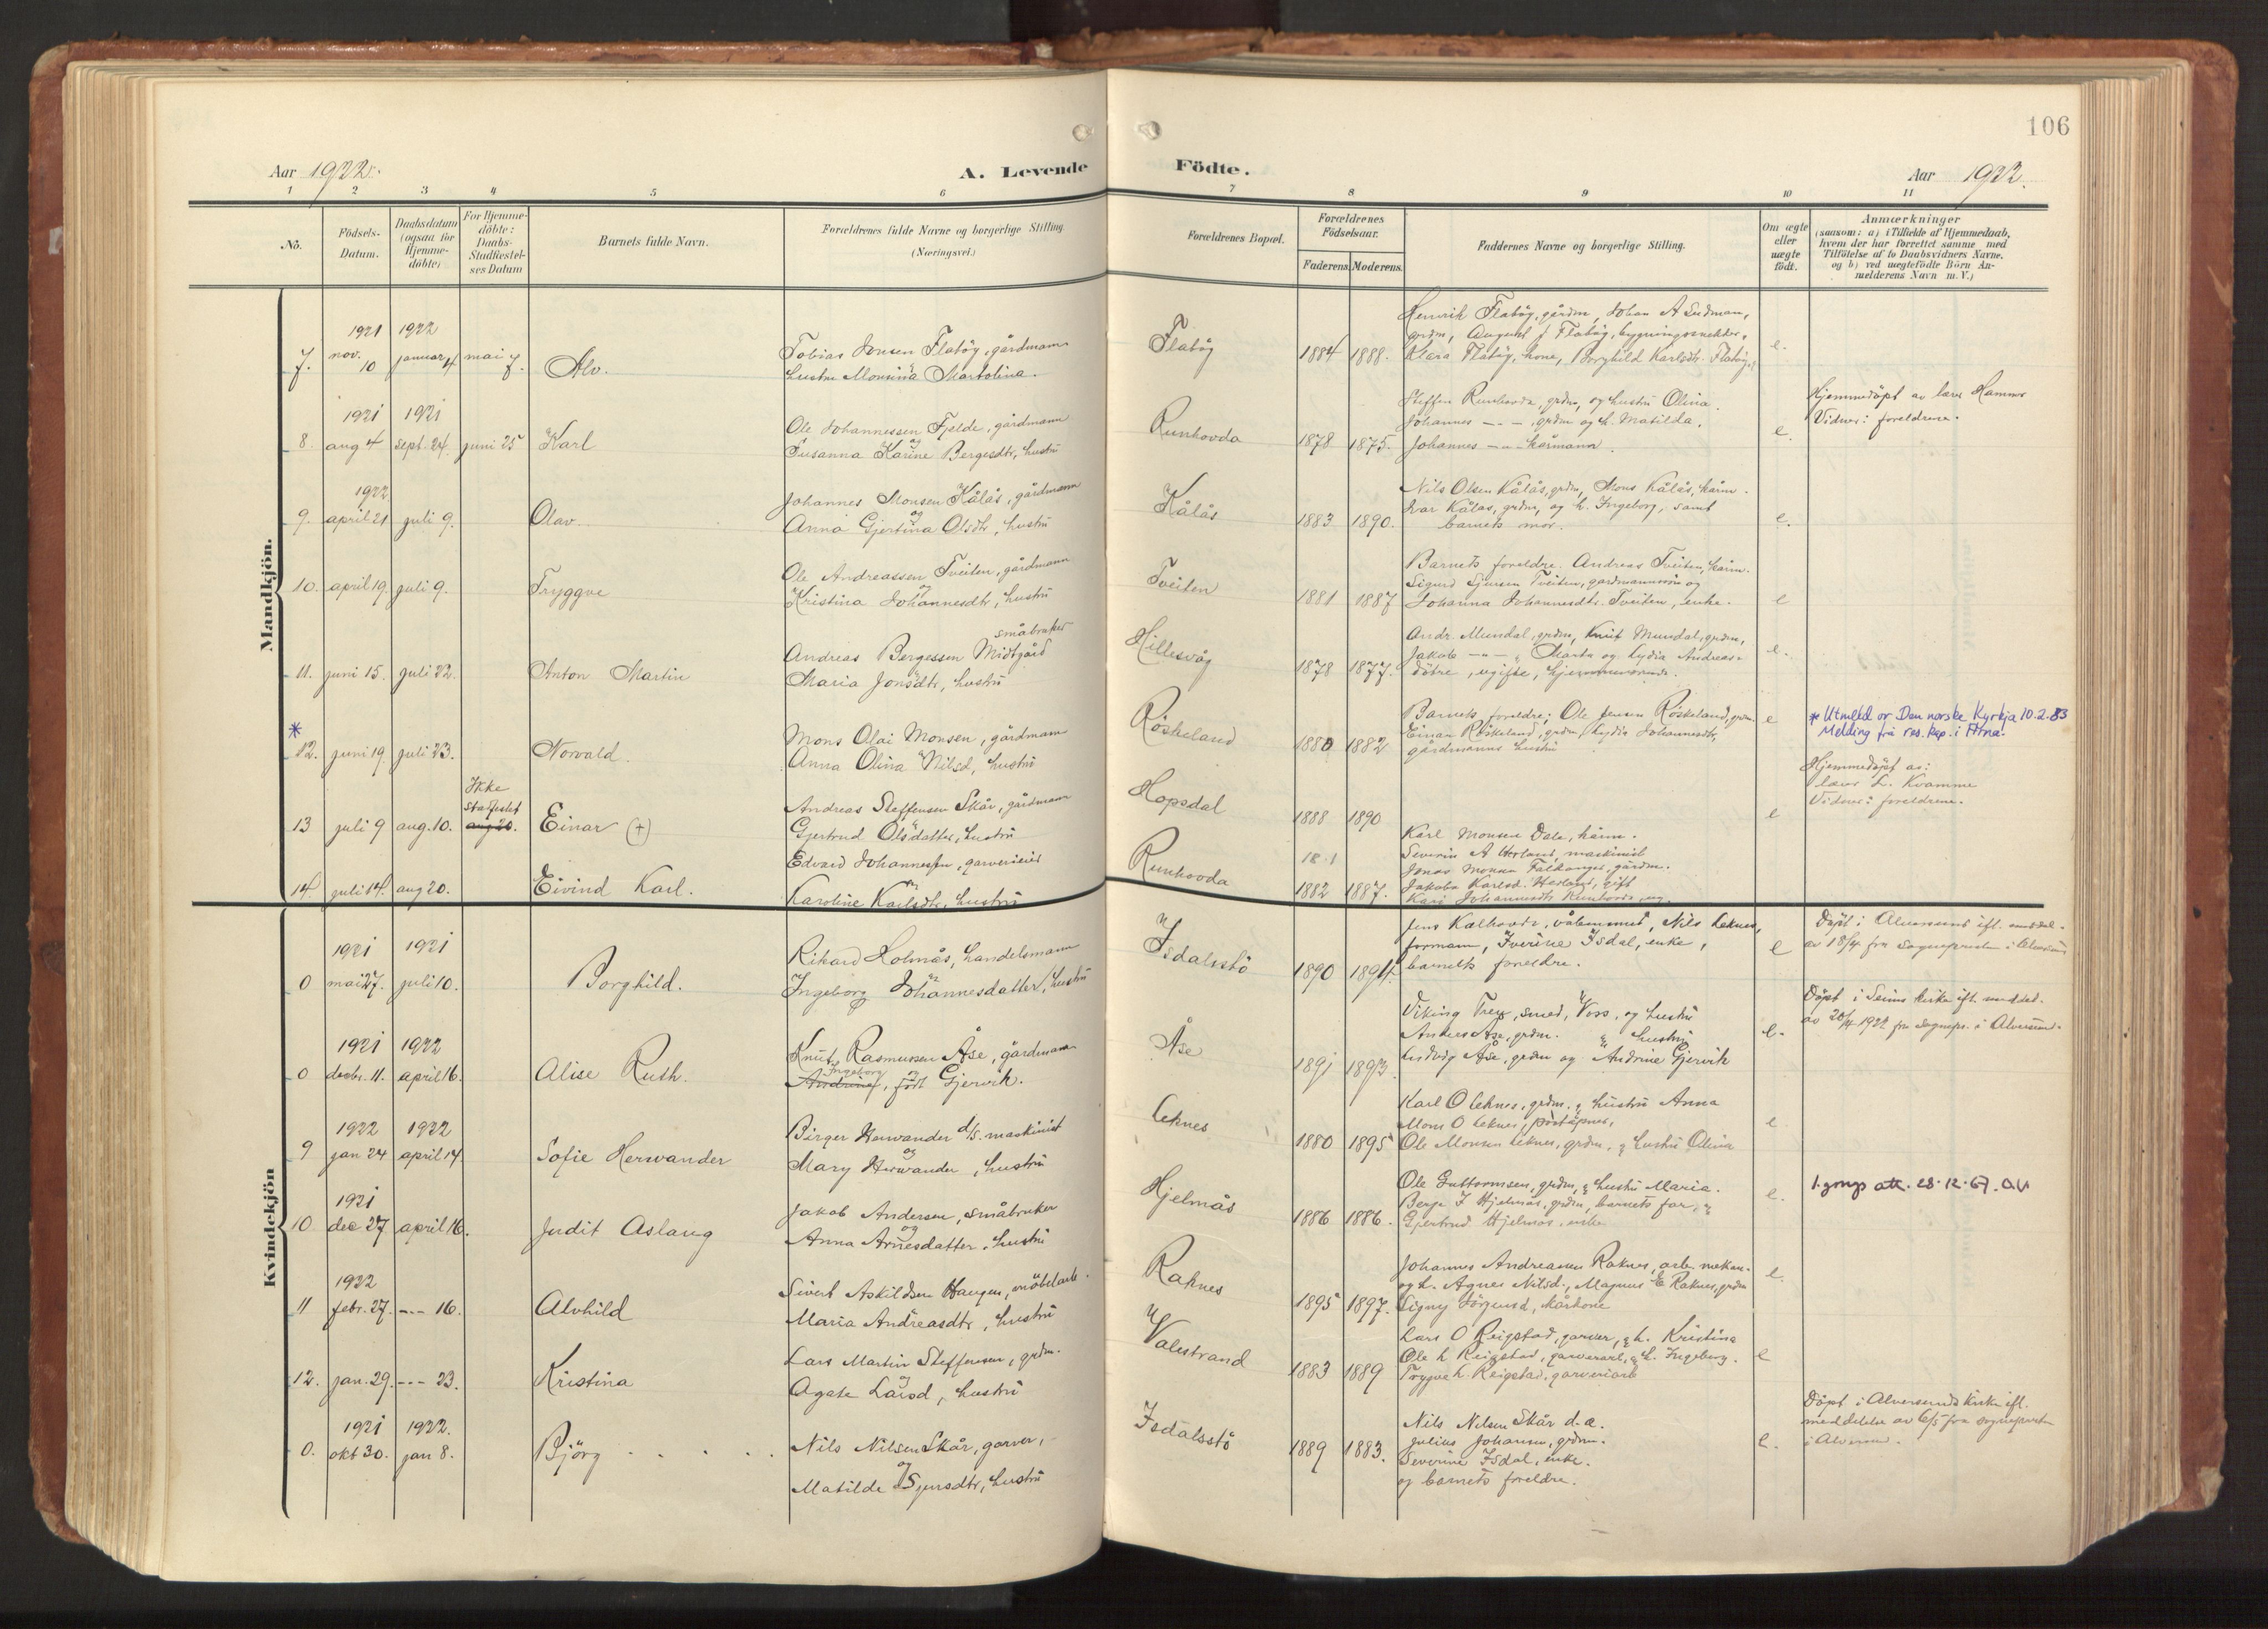 106
Aar 1922.
A. Levende
Födte.
Aar 1922.
1 2 3 4 5 6 7 8 9 10 11
No.
Födsels-
Datum.
Daabsdatum
(ogsaa for
Hjemme-
döbte)
For Hjemme-
döbte:
Daabs-
Stadfæstel-
ses Datum
Barnets fulde Navn.
Forældrenes fulde Navne og borgerlige Stilling
(Næringsvei.)
Forældrenes Bopæl.
Forældrenes
Födselsaar.
Faderens. Moderens.
Faddernes Navne og borgerlige Stilling.
Om ægte
eller
uægte
födt.
Anmærkninger
(saasom: a) i Tilfælde af Hjemmedaab,
hvem der har forrettet samme med
Tilföielse af to Daabsvidners Navne.
og b) ved uægtefödte Börn An-
melderens Navn m. V.)
Mandkjön.
1921 1922
7. nov. 10 januar 4 mai 7. Alv.
Tobias Jonsen Flatöy, gårdmann
hustru Monsina Martolina.
Flatöy
1884 1888.
Henrik Flatöy, gårdm, Johan A
grdm, August J Flatöy, bygningssnekker,
Klara Flatöy, kone, Borghild Karlsdtr. Flatöy
e.
1921 1921
8. aug 4 sept. 24. juni 25 Karl
Ole Johannessen Fjelde, gårdmann
og
Susanna Karine Bergesdtr, hustru
Runhovda
1878 1875.
Steffen Runhovda, grdm, og hustru Olina.
Johannes -"- , grdm og h. Matilda.
Johannes -"- kårmann.
e.
Hjemmedöpt av lærer Hammer
Vidner: foreldrene.
1922
9. april 21 juli 9. Olav.
Johannes Monsen Kålås, gårdmann
og
Anna Gjertina Olsdtr, hustru
Kålås
1883 1890.
Nils Olsen Kålås, grdm, Mons Kålås, kårm.
Ivar Kålas, grdm, og h. Ingeborg, samt
barnets mor.
e.
10. april 19. juli 9. Tryggve
Ole Andreassen Tveiten, gårdmann
og
Kristina Johannesdtr, hustru
Tveiten
1881 1887
Barnets foreldre. Andreas Tveiten, kårm.
Sigurd Sjursen Tveiten, gardmannssön og
Johanna Johannesdtr. Tveiten, enke.
e
11. juni 15. juli 22. Anton Martin
småbruker
Andreas Bergessen Midtgård
Maria Jonsdtr, hustru
Hillesvåg
1878 1877.
Andr. Mundal, grdm, Knut Mundal, grdm,
Jakob -"- , Marta og Lydia Andreas-
dötre, ugifte,
e.
*
12. juni 19. juli 23. Norvald.
Mons Olai Monsen, gårdmann
Anna Olina Nilsd, hustru
Röskeland
1880 1882
Barnets foreldre; Ole Jensen Röskeland, grdm.
Einar Röskeland, grdm, Lydia Johannesdtr,
gårdmanns hustru
e
* Utmeld or Den norske Kyrkja 10.2.83
Melding frå res. kap. i Arna.
Ikke
stadfestet
13 juli 9 aug. 10. aug 20. Einar (+)
Andreas Steffensen Skår, gårdmann
Gjertrud Olsdatter, hustru
Hopsdal
1888 1890
e
Hjemmedöpt av:
lærer L. Kvamme
Vidner: foreldrene.
14. juli 14. aug 20. Eivind Karl.
Edvard Johannessen, garverieier
Karoline Karlsdtr, hustru
Runhovda
1882 1887.
Karl Monsen Dale, kårm.
Severin A Herland, maskinist
Jonas Monsen Falkanger, gårdm.
Jakoba Karlsd. Herland, gift
Kari Johannesdtr Runhovda, ug.
Kvindekjön
1921 1921
0 mai 27. juli 10. Borghild.
Rikard Holmås, handelsmann
Ingeborg Johannesdatter, hustru
Isdalsstö
1890 1894.
Jens Kalhovde, våbensmed, Nils Leknes,
formann, Iverine Isdal, enke,
barnets foreldre.
e
Döpt i Alversund ifl. meddel.
av 18/4 fra Sognepresten i Alversund
1921 1922
0 decbr. 11. april 16. Alise Ruth.
Knut Rasmussen Åse, gårdmann
Ingeborg og
Andrine, födt Gjervik.
Åse
1891 1893.
Viking Trex, smed, Voss, og hustru
Anders Åse, grdm. & hustru
Ludvig Åse, grdm og Andrine Gjervik
e.
Döpt i Seims kirke ifl. meddel.
av 20/4 1922 fra Sognepr. i Alversund.
1922 1922
9 jan 24 april 14. Sofie Herwander
Birger Herwander d/s. maskinist
og
Mary Herwander, hustru
Leknes
1880 1895
Karl O Leknes, grdm. & hustru Anna
Mons O Leknes, poståpner,
Ole Monsen Leknes, grdm. & hustru Olina
e.
1921
10 dec 27 april 16. Judit Aslaug
Jakob Andersen, småbruker
og
Anna Arnesdatter, hustru
Hjelmås
1886 1886.
Ole Guttormsen, grdm, & hustru Maria.
Berge J Hjelmås, grdm, barnets far, &
Gjertrud Hjelmås, enke
e.
1. gongs att. 28.12.67.
1922
11 febr. 27. --- 16. Alvhild
Sivert Askildsen Haugen, möbelarb.
Maria Andreasdtr, hustru
Raknes
1895 1897.
Johannes Andreassen Raknes, arb. mekan.
og h. Agnes Nilsd., Magnus E Raknes, grdm
Signy Jörgensd, kårkone
e.
12. jan. 29. --- 23. Kristina
Lars Martin Steffensen, grdm.
og
Agate Larsd, hustru
Valestrand
1883 1889
Lars O Reigstad, garver, & h. Kristina
Ole L Reigstad, garverarb, & h. Ingeborg.
Trygve L. Reigstad, garveriarb
e
1921 1922.
0. okt 30. jan 8. Björg
Nils Nilsen Skår, garver,
og
Matilde Sjursdtr, hustru
Isdalsstö
1889 1883.
Nils Nilsen Skår d.e.
Julius Johansen, grdm.
Severine Isdal, enke.
og barnets foreldre.
e.
Döpt i Alversunds kirke ifl.
meddelelse av 6/5 fra sognepresten
i Alversund.